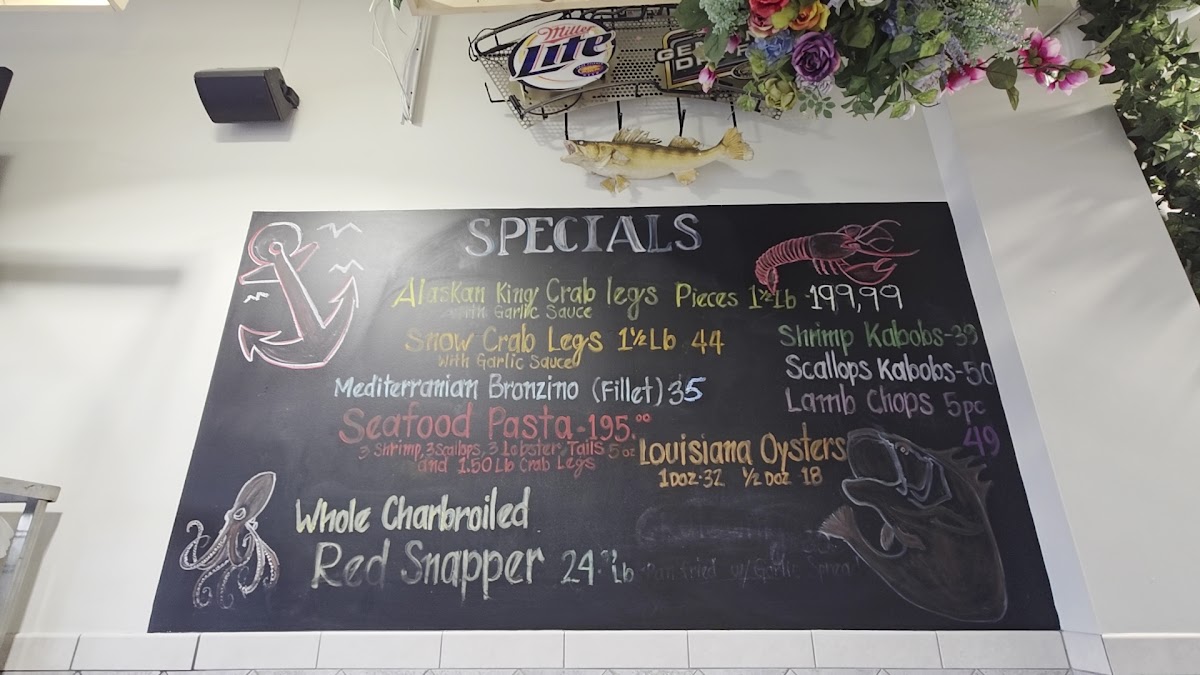 Miller
Lite
SPECIALS
Alaskan King Crab legs Pieces 1½ Lb -199,99
with Garlic Sauce
Snow Crab Legs 1½ Lb 44
With Garlic Sauce
Shrimp Kabobs-39
Scallops Kabobs-50
Mediterranian Bronzino (Fillet) 35
Lamb Chops 5pc
49
Seafood Pasta-195.00
3 Shrimp, 3 Scallops, 3 Lobster Tails 5oz
and 1.50 Lb Crab Legs
Louisiana Oysters
1 Doz-32 ½ Doz 18
Whole Charbroiled
Red Snapper 24.99 Lb
Pan fried w/ Garlic